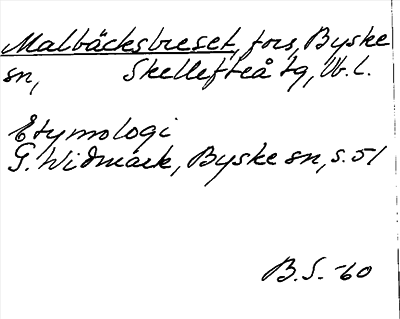 Malbäcksbreset, fors, Byske
sn, Skellefteå tg, Vb. L.
Etymologi
G. Widmark, Byske sn, s. 51
B.S. -60